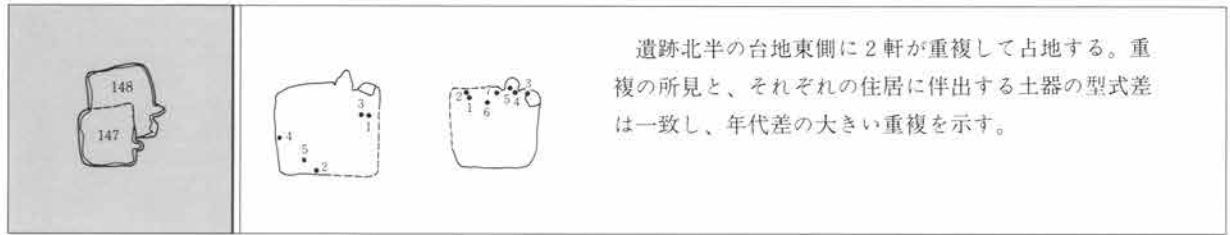 148
147
3
1
4
5
2
3
2
7
5
4
1
6
遺跡北半の台地東側に2軒が重複して占地する。重
複の所見と、それぞれの住居に伴出する土器の型式差
は一致し、年代差の大きい重複を示す。